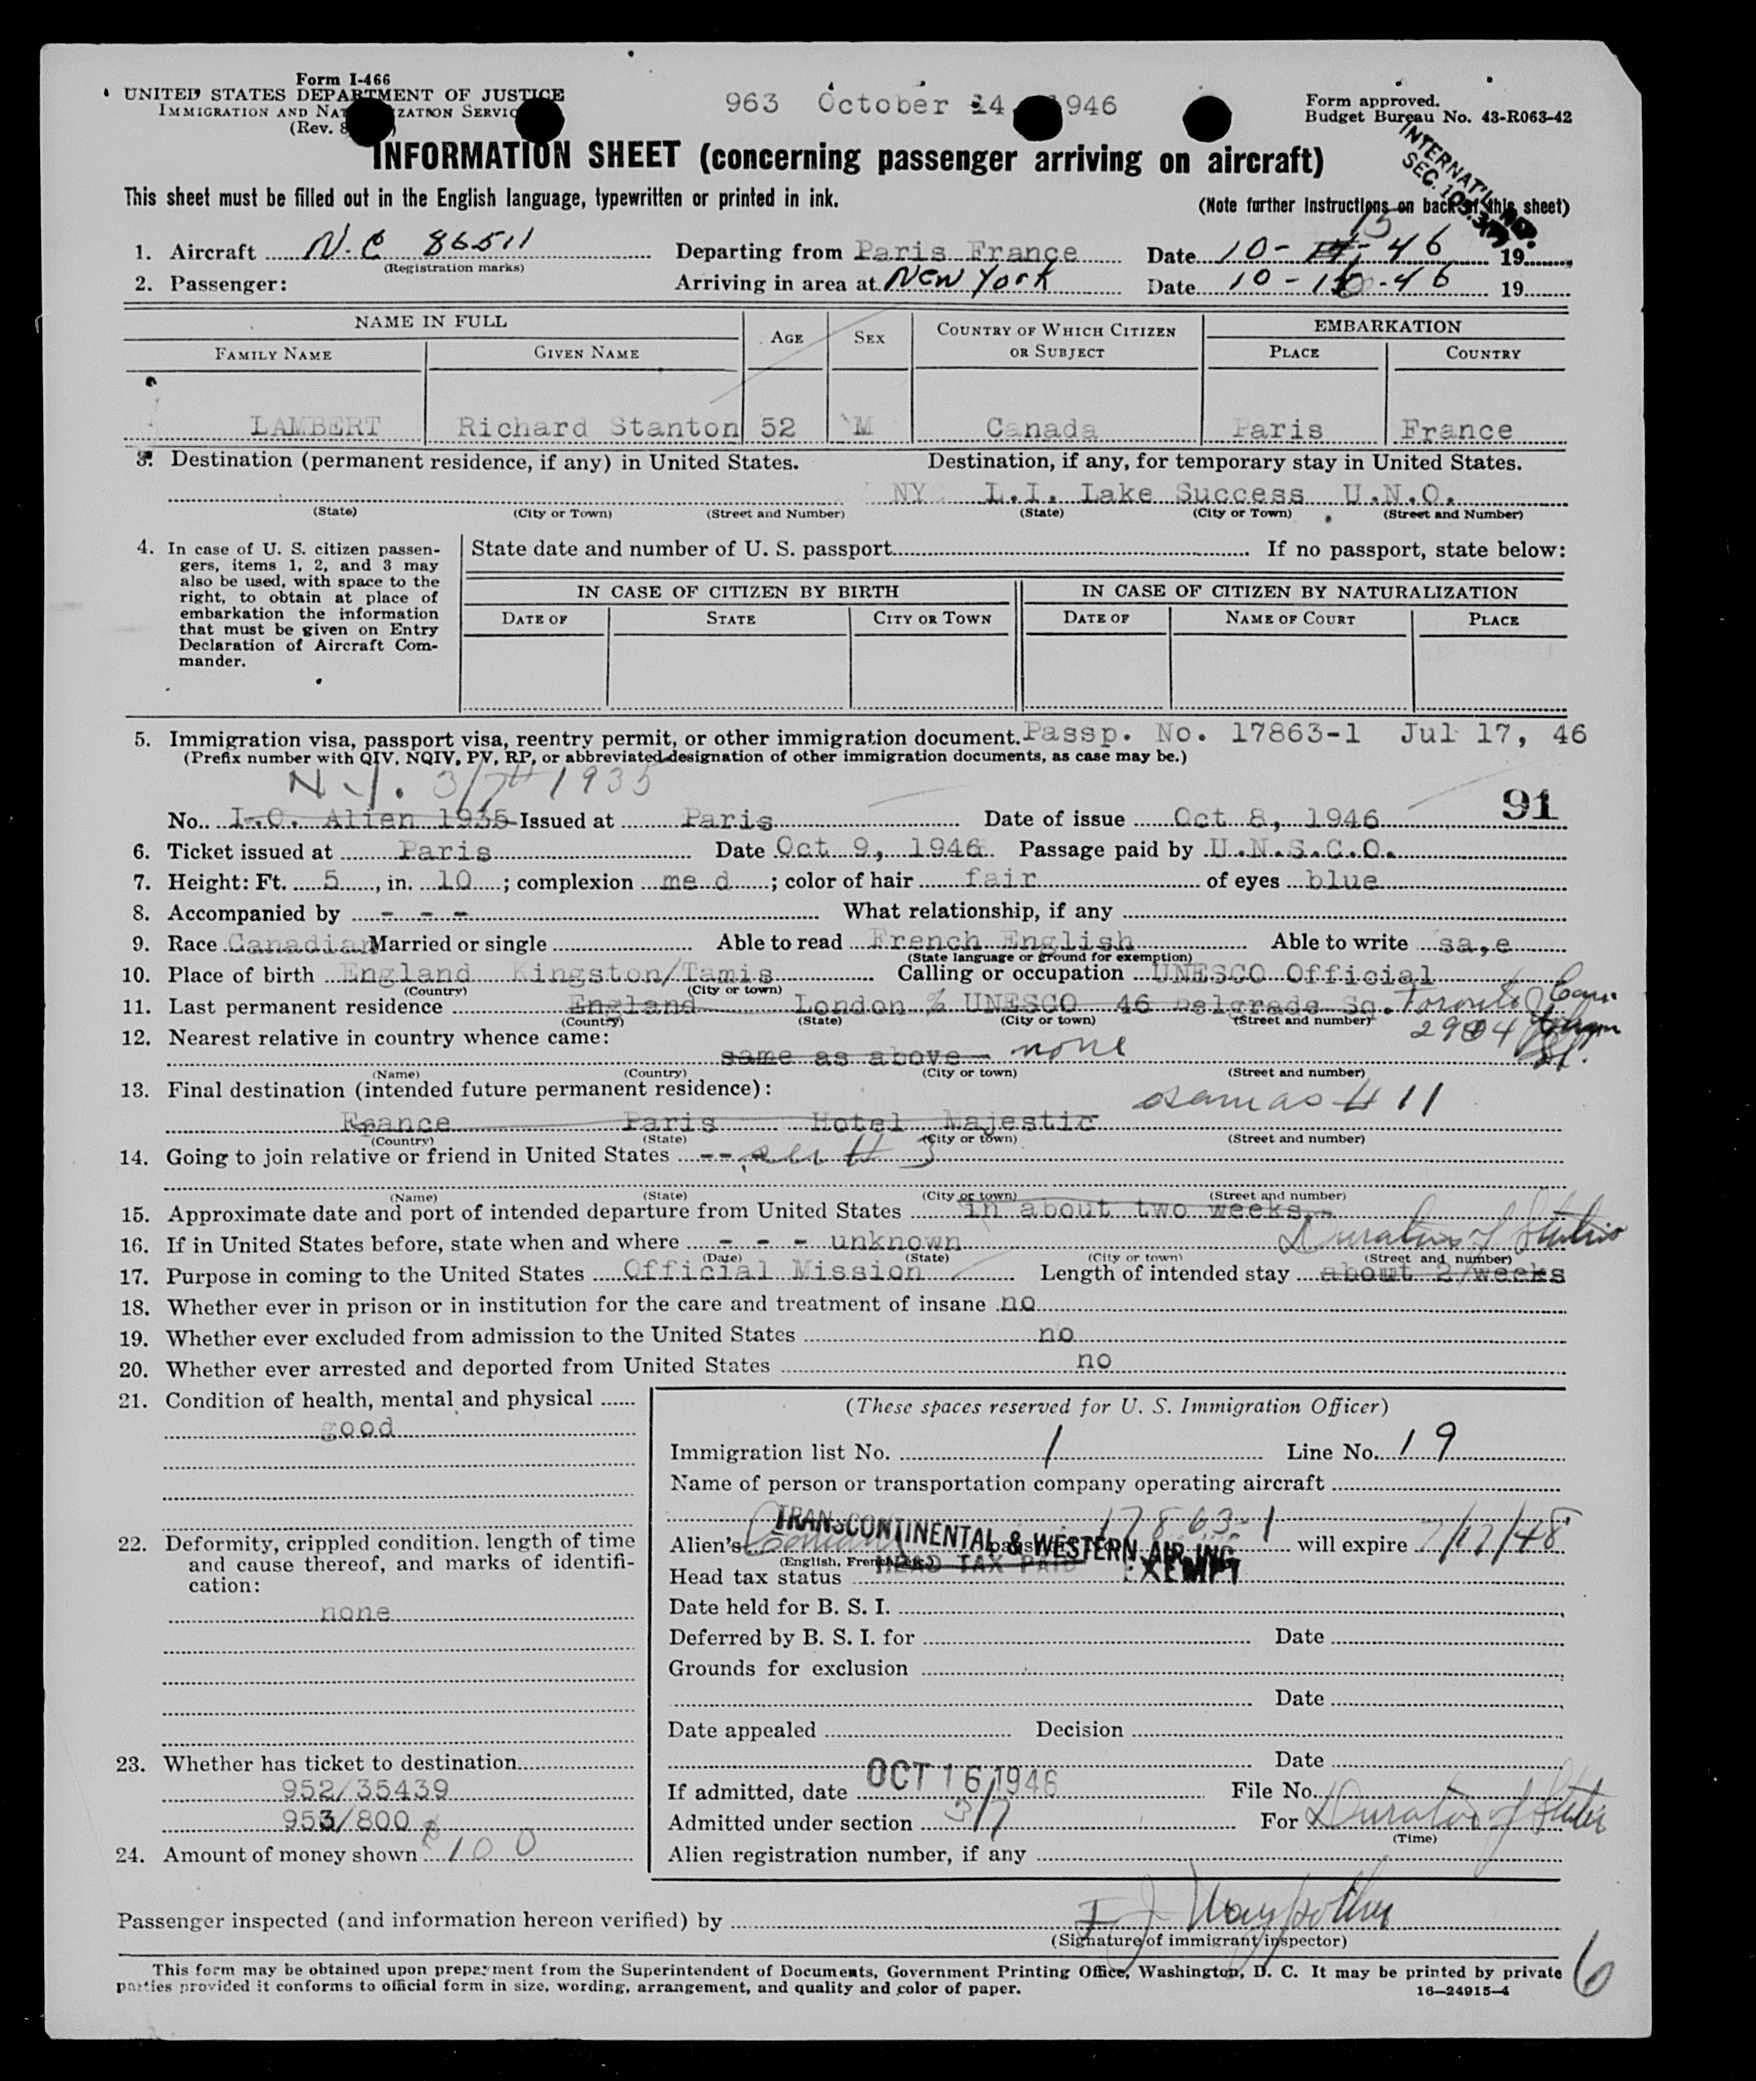 Form I-466
UNITED STATES DEPARTMENT OF JUSTICE
IMMIGRATION AND NAT ZATION SERVIC
(Rev. 8 )
963 October 14 1946
Form approved.
Budget Bureau No. 43-R063-42
INFORMATION SHEET (concerning passenger arriving on aircraft)
INTERNAT'L
SEC. 10
This sheet must be filled out in the English language, typewritten or printed in ink.
(Note further instructions on back of this sheet)
15
1. Aircraft N.C 86511 Departing from Paris France Date 10-14-46 19
(Registration marks)
2. Passenger: Arriving in area at New York Date 10-16-46 19
NAME IN FULL AGE SEX COUNTRY OF WHICH CITIZEN OR SUBJECT EMBARKATION
FAMILY NAME GIVEN NAME PLACE COUNTRY
LAMBERT Richard Stanton 52 M Canada Paris France
3. Destination (permanent residence, if any) in United States. Destination, if any, for temporary stay in United States.
NY L.I. Lake Success U.N.O.
(State) (City or Town) (Street and Number) (State) (City or Town) (Street and Number)
4. In case of U. S. citizen passen-
gers, items 1, 2, and 3 may
also be used, with space to the
right, to obtain at place of
embarkation the information
that must be given on Entry
Declaration of Aircraft Com-
mander.
State date and number of U. S. passport If no passport, state below:
IN CASE OF CITIZEN BY BIRTH IN CASE OF CITIZEN BY NATURALIZATION
DATE OF STATE CITY OR TOWN DATE OF NAME OF COURT PLACE
5. Immigration visa, passport visa, reentry permit, or other immigration document. Passp. No. 17863-1 Jul 17, 46
(Prefix number with QIV, NQIV, PV, RP, or abbreviated designation of other immigration documents, as case may be.)
N.I. 3/7 # 1935
91
No. I.O. Alien 1935 Issued at Paris Date of issue Oct 8, 1946
6. Ticket issued at Paris Date Oct 9, 1946 Passage paid by U.N.S.C.O.
7. Height: Ft. 5, in. 10; complexion me d; color of hair fair of eyes blue
8. Accompanied by - - - What relationship, if any
9. Race Canadian Married or single Able to read French English Able to write sa,e
(State language or ground for exemption)
10. Place of birth England Kingston/Tamis Calling or occupation UNESCO Official
(Country) (City or town)
11. Last permanent residence England London % UNESCO 46 Belgrade Sq. Toronto Can.
(Country) (State) (City or town) (Street and number)
2904
12. Nearest relative in country whence came:
same as above - none
(Name) (Country) (City or town) (Street and number)
13. Final destination (intended future permanent residence):
France Paris Hotel Majestic same as # 11
(Country) (State) (City or town) (Street and number)
14. Going to join relative or friend in United States --- see # 3
(Name) (State) (City or town) (Street and number)
15. Approximate date and port of intended departure from United States in about two weeks.-
16. If in United States before, state when and where - - - unknown Duration of Status
(Date) (State) (City or town) (Street and number)
17. Purpose in coming to the United States Official Mission Length of intended stay about 2/weeks
18. Whether ever in prison or in institution for the care and treatment of insane no
19. Whether ever excluded from admission to the United States no
20. Whether ever arrested and deported from United States no
21. Condition of health, mental and physical
good
22. Deformity, crippled condition, length of time
and cause thereof, and marks of identifi-
cation:
none
23. Whether has ticket to destination
952/35439
953/800
24. Amount of money shown $100
(These spaces reserved for U. S. Immigration Officer)
Immigration list No. 1 Line No. 19
Name of person or transportation company operating aircraft
TRANSCONTINENTAL & WESTERN AIR INC
Alien's Canadian pass 17863-1 will expire 7/17/48
(English, French, etc.)
Head tax status HEAD TAX PAID EXEMPT
Date held for B. S. I.
Deferred by B. S. I. for Date
Grounds for exclusion
Date
Date appealed Decision
Date
If admitted, date OCT 16 1946 File No.
Admitted under section 3/7 For Duration of Status
(Time)
Alien registration number, if any
Passenger inspected (and information hereon verified) by
(Signature of immigrant inspector)
This form may be obtained upon prepayment from the Superintendent of Documents, Government Printing Office, Washington, D. C. It may be printed by private
parties provided it conforms to official form in size, wording, arrangement, and quality and color of paper.
16—24915-4
6